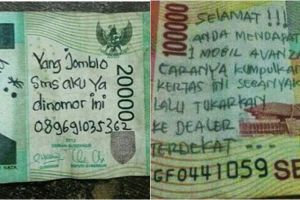 Yang Jomblo
Sms aku Ya
dinomor ini
089691035362
20000
100000
SELAMAT !!!
ANDA MENDAPAT
1 MOBIL AVANZA
CARANYA KUMPULKAN
KERTAS INI SEBANYAK
LALU TUKARKAN
KE DEALER
TERDEKAT
GF0441059
SE